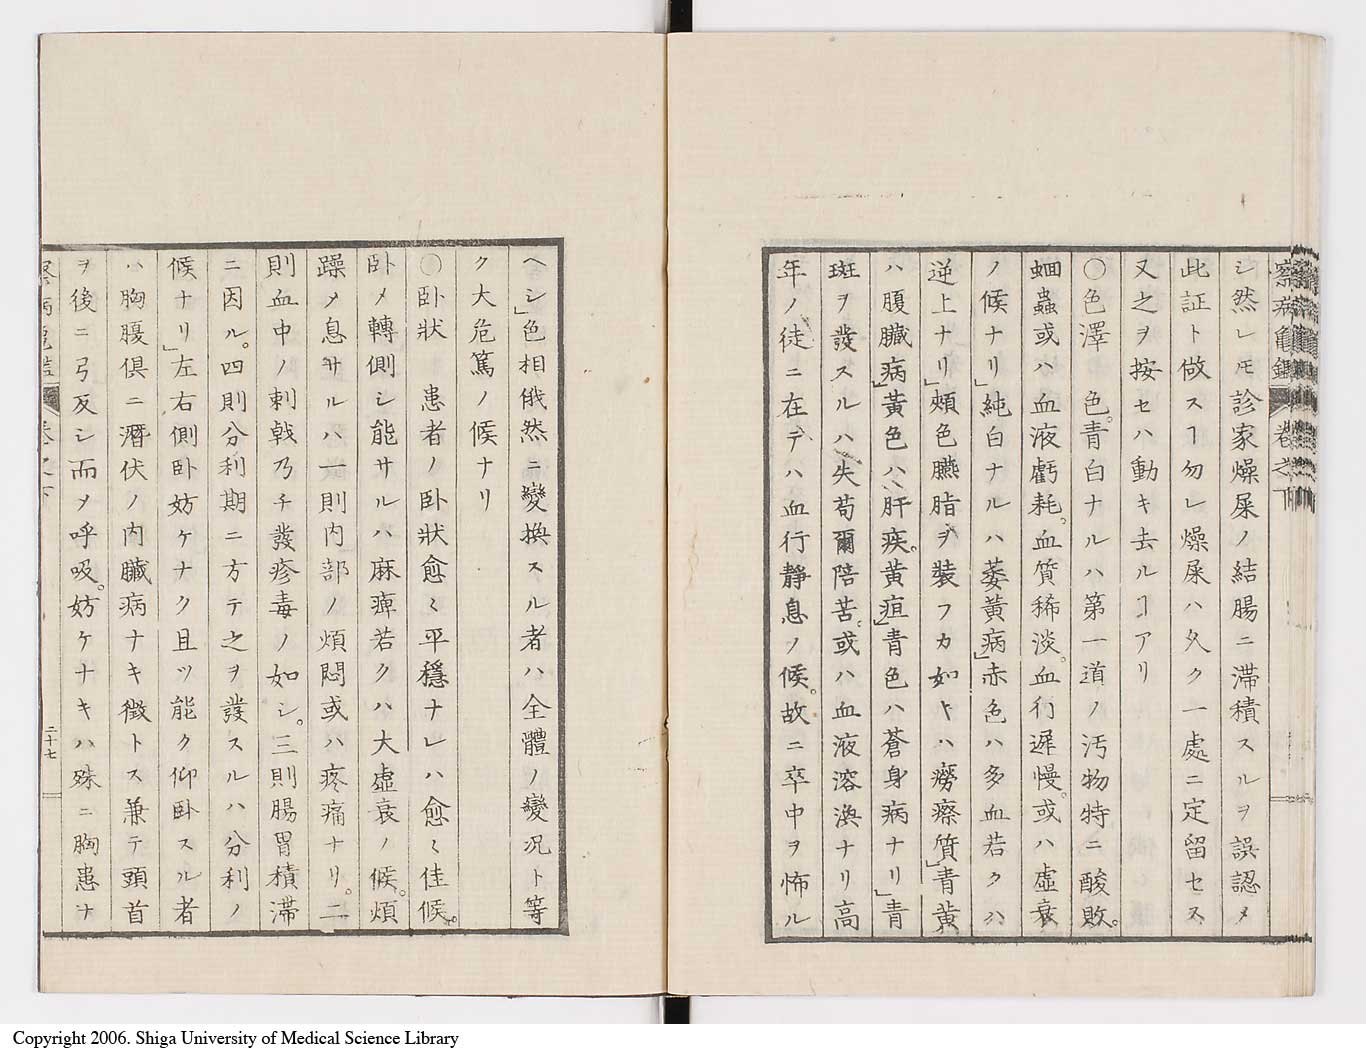 察病亀鑑 卷之下
シ然レ𪜈診家燥屎ノ結腸ニ滞積スルヲ誤認メ
此証ト做スヿ勿レ燥屎ハ久ク一處ニ定留セス
又之ヲ按セハ動キ去ルヿアリ
〇色澤 色。青白ナルハ第一道ノ汚物特ニ酸敗。
蛔蟲或ハ血液虧耗。血質稀淡。血行遲慢。或ハ虚衰
ノ候ナリ」純白ナルハ萎黃病」赤色ハ多血若クハ
逆上ナリ」頰色臙脂ヲ裝フカ如キハ癆瘵質」青黃
ハ腹臓病」黃色ハ肝疾。黃疸」青色ハ蒼身病ナリ」青
斑ヲ發スルハ失苟爾陪苦。或ハ血液溶渙ナリ高
年ノ徒ニ在テハ血行靜息ノ候。故ニ卒中ヲ怖ル
ヘシ」色相俄然ニ變換スル者ハ全體ノ變況ト等
ク大危篤ノ候ナリ
〇卧狀 患者ノ卧狀愈〻平穩ナレハ愈〻佳候。
卧メ轉側シ能サルハ麻痺若クハ大虚衰ノ候。煩
躁メ息サルハ一則内部ノ煩悶或ハ疼痛ナリ。二
則血中ノ刺戟乃チ發疹毒ノ如シ。三則腸胃積滞
ニ因ル。四則分利期ニ方テ之ヲ發スルハ分利ノ
候ナリ」左右側卧妨ケナク且ツ能ク仰卧スル者
ハ胸腹倶ニ潛伏ノ内臓病ナキ徴トス兼テ頭首
ヲ後ニ弓反シ而メ呼吸。妨ケナキハ殊ニ胸患ナ
察病亀鑑 卷之下 二十七
Copyright 2006. Shiga University of Medical Science Library